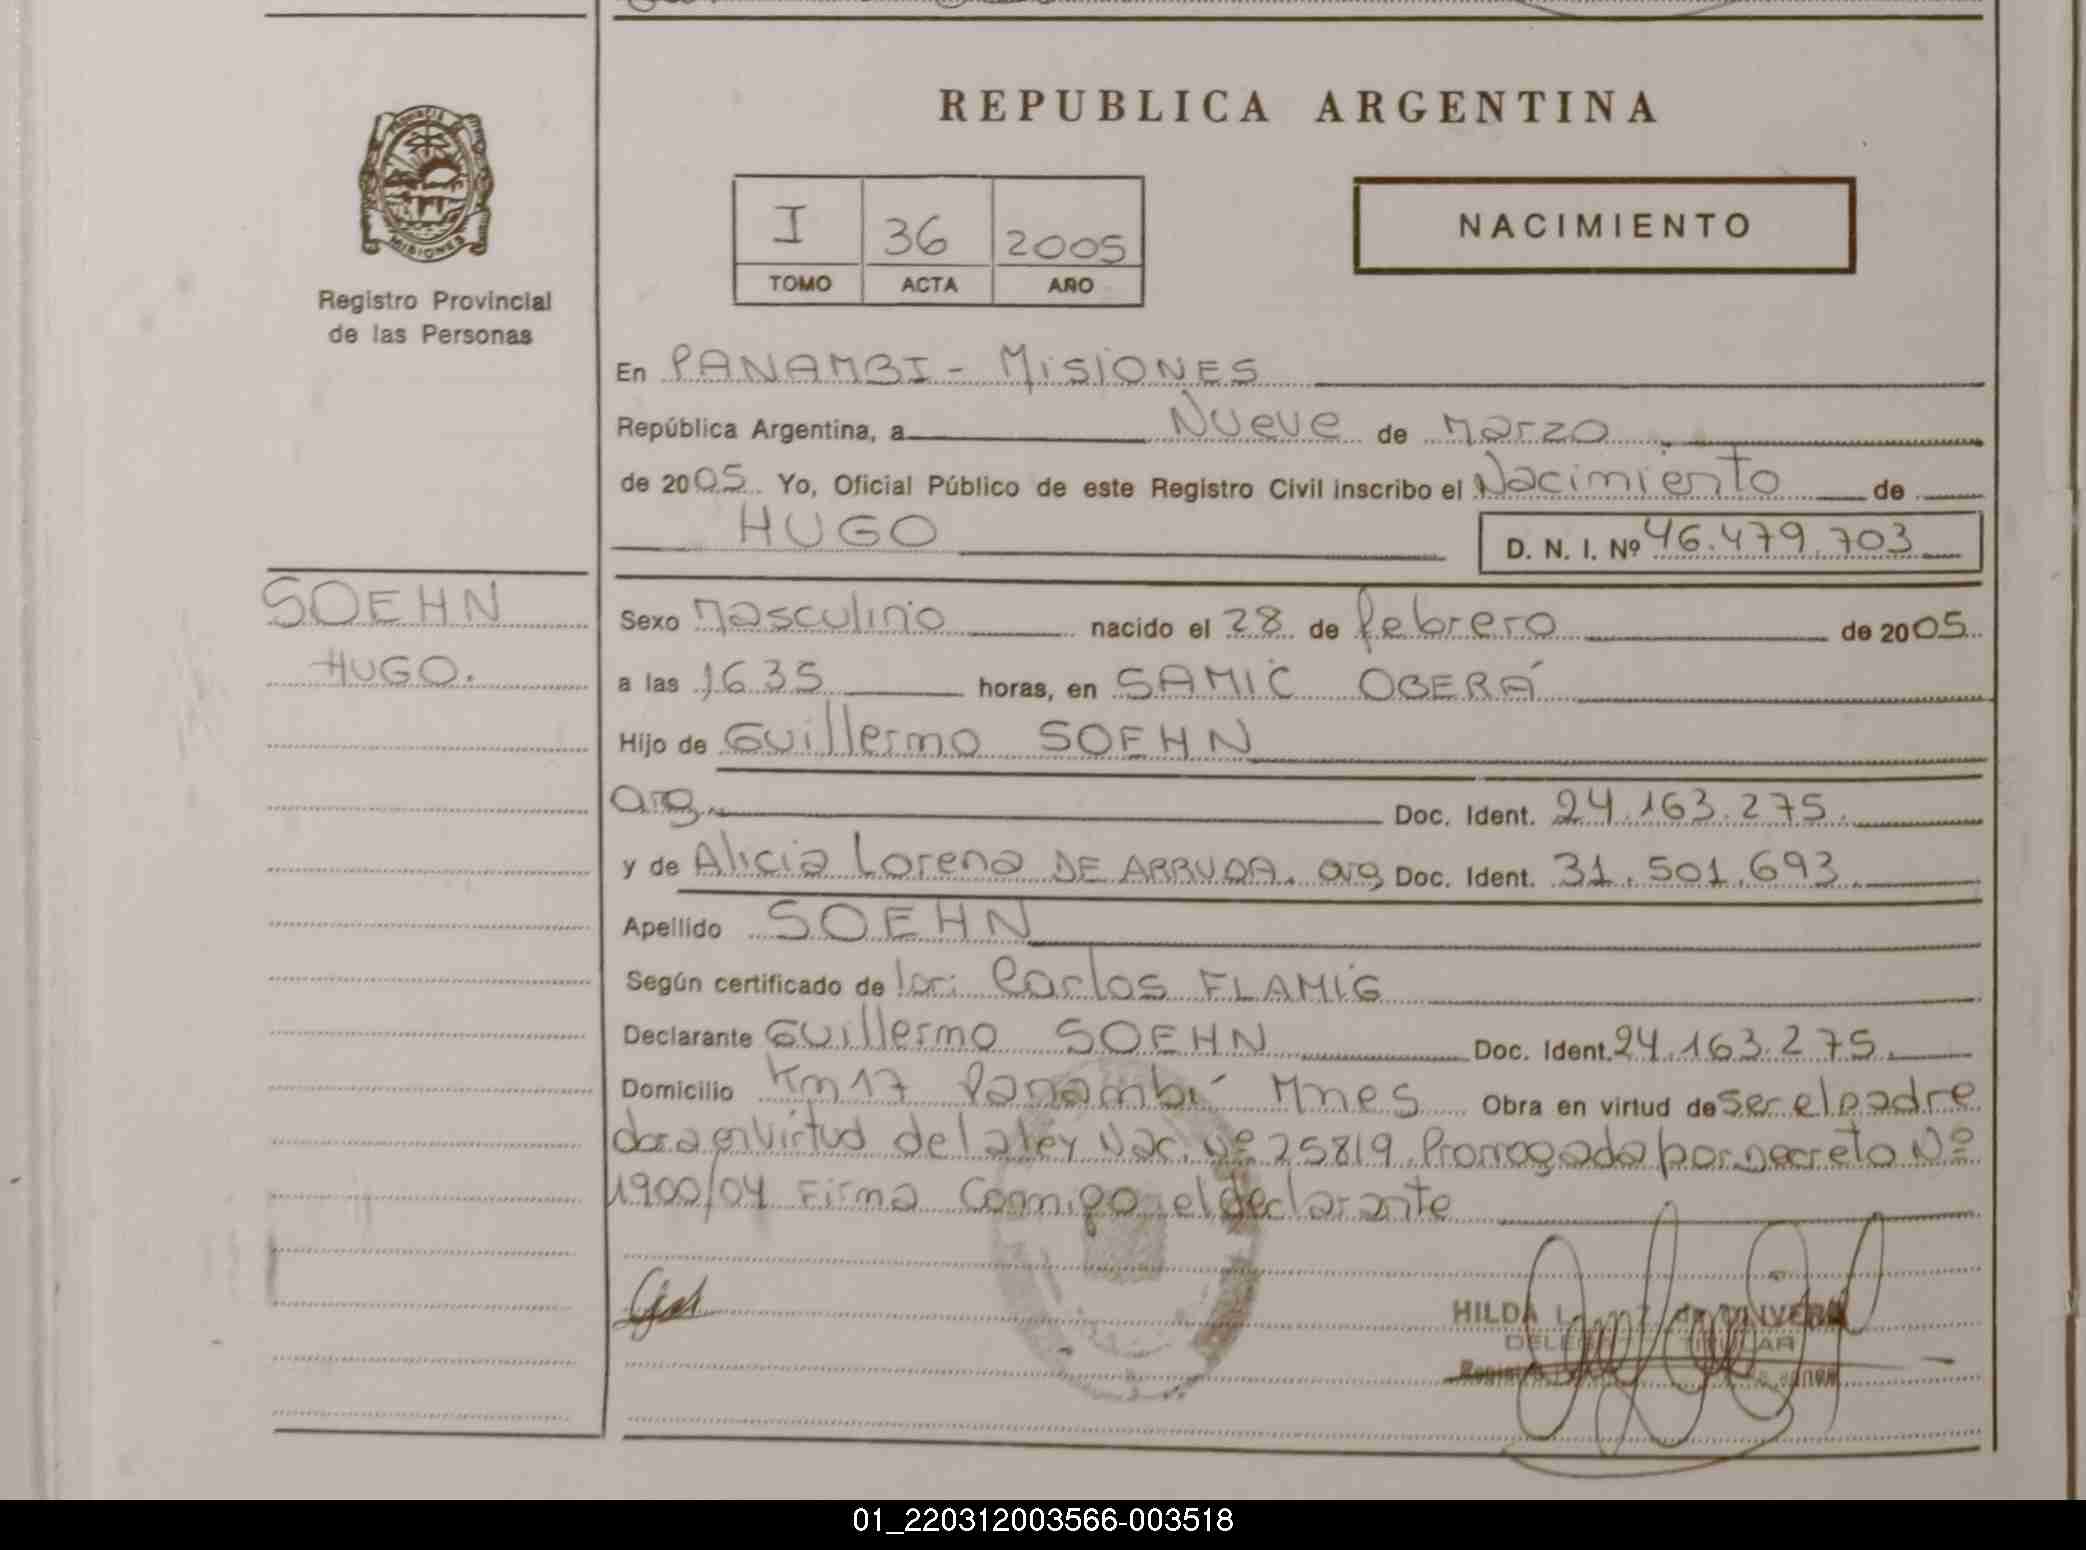 REPUBLICA ARGENTINA
PROVINCIA
MISIONES
Registro Provincial
de las Personas
I 36 2005
TOMO ACTA AÑO
NACIMIENTO
En PANAMBI - MISIONES
República Argentina, a Nueve de Marzo
de 2005 Yo, Oficial Público de este Registro Civil inscribo el Nacimiento de
HUGO
D. N. I. Nº 46.479.703
SOEHN
HUGO.
Sexo Masculino nacido el 28 de febrero de 2005
a las 1635 horas, en SAMIC OBERÁ
Hijo de Guillermo SOEHN
arg. Doc. Ident. 24.163.275.
y de Alicia Lorena DE ARRUDA. arg Doc. Ident. 31.501.693.
Apellido SOEHN
Según certificado de Carlos FLAMIG
Declarante Guillermo SOEHN Doc. Ident. 24.163.275.
Domicilio Km 17 Panambí Mnes Obra en virtud de ser el padre
en virtud de la ley Nac. Nº 25819 Prorrogada por Decreto Nº
1900/04 Firma Conmigo el declarante
HILDA
01_220312003566-003518